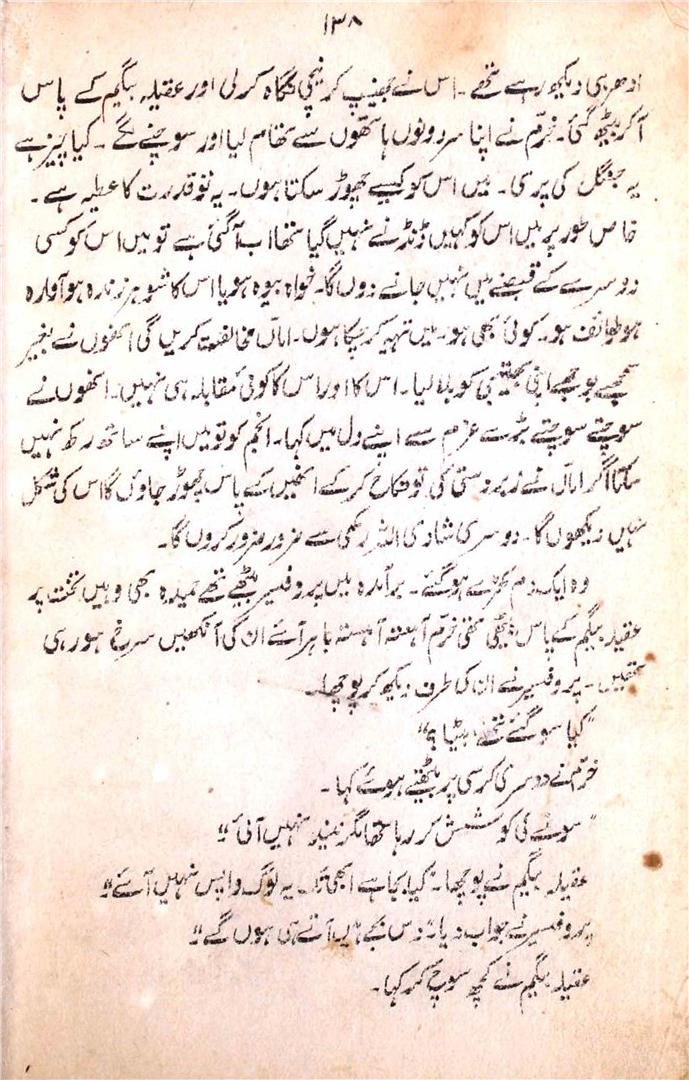 ۱۳۸
ادھر ہی دیکھ رہے تھے ۔ اس نے جھینپ کر نیچی نگاہ کر لی اور عقیلہ بیگم کے پاس
آکر بیٹھ گئی۔ خرّم نے اپنا سر دونوں ہاتھوں سے تھام لیا اور سوچنے لگے ۔ کیا چیز ہے
یہ جنگل کی پری ۔ میں اس کو کیسے چھوڑ سکتا ہوں ۔ یہ تو قدرت کا عطیہ ہے ۔
خاص طور پر میں اس کو کہیں ڈھونڈنے نہیں گیا تھا اب آگئی ہے تو میں اس کو کسی
دوسرے کے قبضے میں نہیں جانے دوں گا۔ خواہ بیوہ ہو یا اس کا شوہر زندہ ہو آوارہ
ہو طوائف ہو ۔ کوئی بھی ہو ۔ میں تہیہ کر چکا ہوں ۔ اماں مخالفت کریں گی انھوں نے بغیر
سمجھے بوجھے اپنی بھتیجی کو بلا لیا ۔ اس کا اور اس کا کوئی مقابلہ ہی نہیں ۔ انھوں نے
سوچتے سوچتے بڑے عزم سے اپنے دل میں کہا ۔ انجم کو تو میں اپنے ساتھ رکھ نہیں
سکتا اگر اماں نے زبردستی کی تو نکاح کر کے انھیں کے پاس چھوڑ جاؤں گا اس کی شکل
نہیں دیکھوں گا ۔ دوسری شادی اللہ رکھی سے ضرور ضرور کروں گا ۔
وہ ایک دم کھڑے ہو گئے ۔ برآمدہ میں پروفیسر بیٹھے تھے حمیدہ بھی وہیں تخت پر
عقیلہ بیگم کے پاس بیٹھی تھی خرّم آہستہ آہستہ باہر آئے ان کی آنکھیں سرخ ہو رہی
تھیں ۔ پروفیسر نے ان کی طرف دیکھ کر پوچھا ۔
"کیا سو گئے تھے بیٹا ؟"
خرّم نے دوسری کرسی پر بیٹھتے ہوئے کہا ۔
"سونے کی کوشش کر رہا تھا مگر نیند نہیں آئی"
عقیلہ بیگم نے پوچھا ۔ کیا بجا ہے ابھی تک یہ لوگ واپس نہیں آئے"
پروفیسر نے جواب دیا" دس بجے ہیں آتے ہی ہوں گے"
عقیلہ بیگم نے کچھ سوچ کر کہا ۔